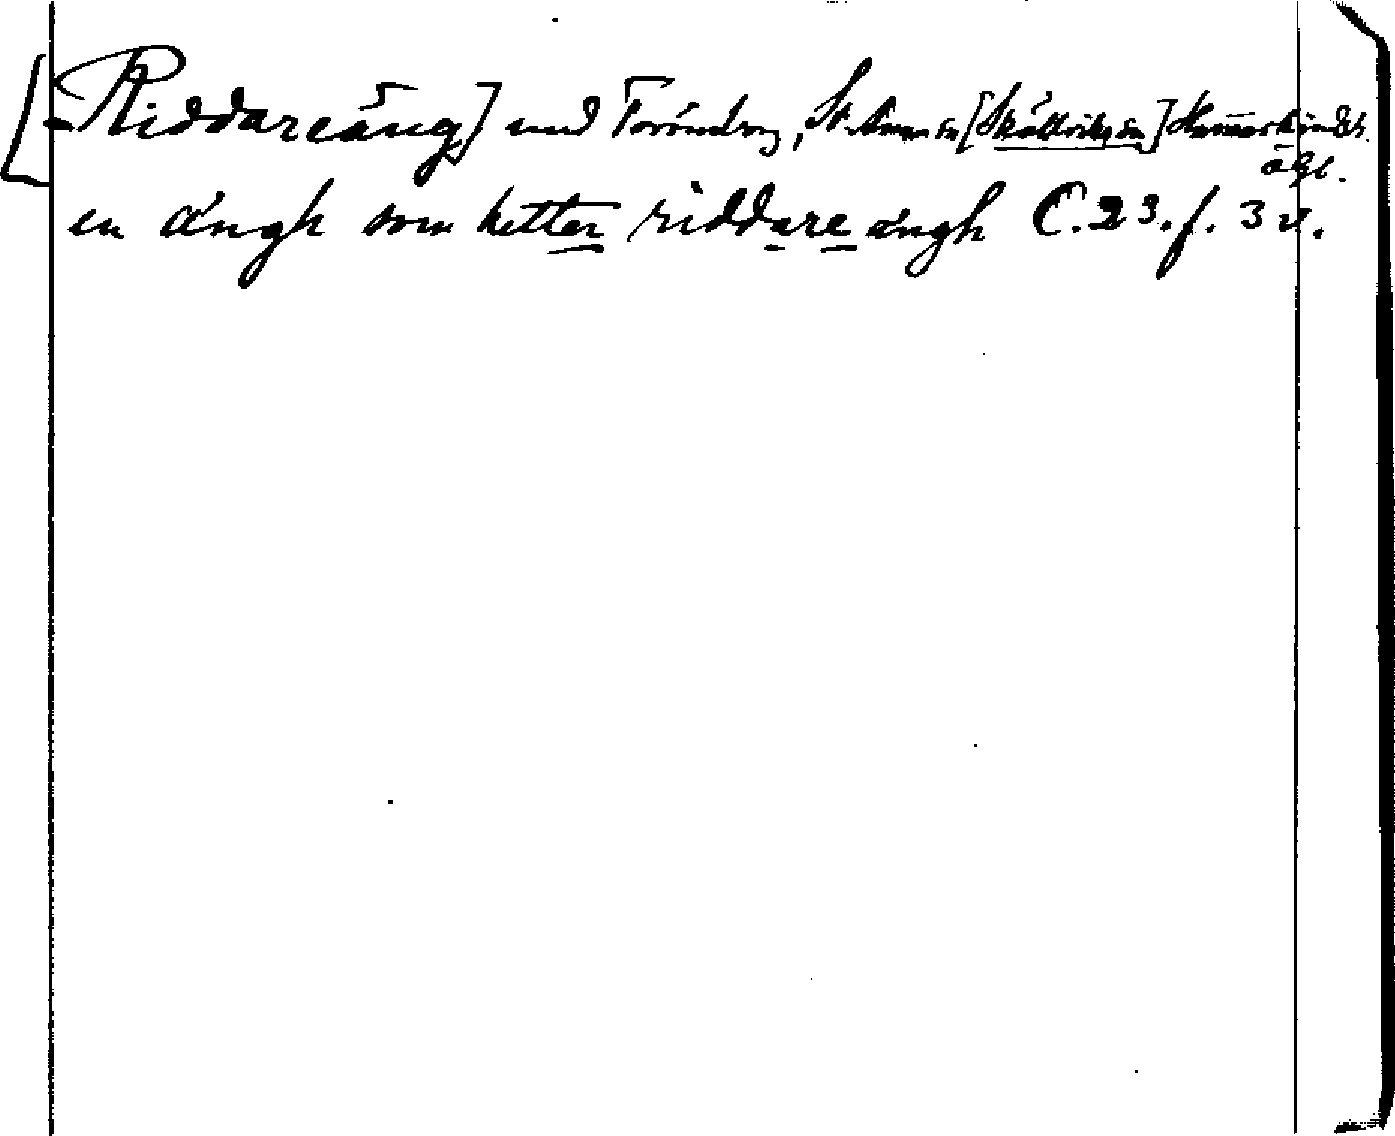 [Riddareäng] und Torönsborg, St. Anna sn [Skällviks sn] Hammarkinds h.
ögl.
en ängh som hetter riddare ängh C. 23. f. 3 v.